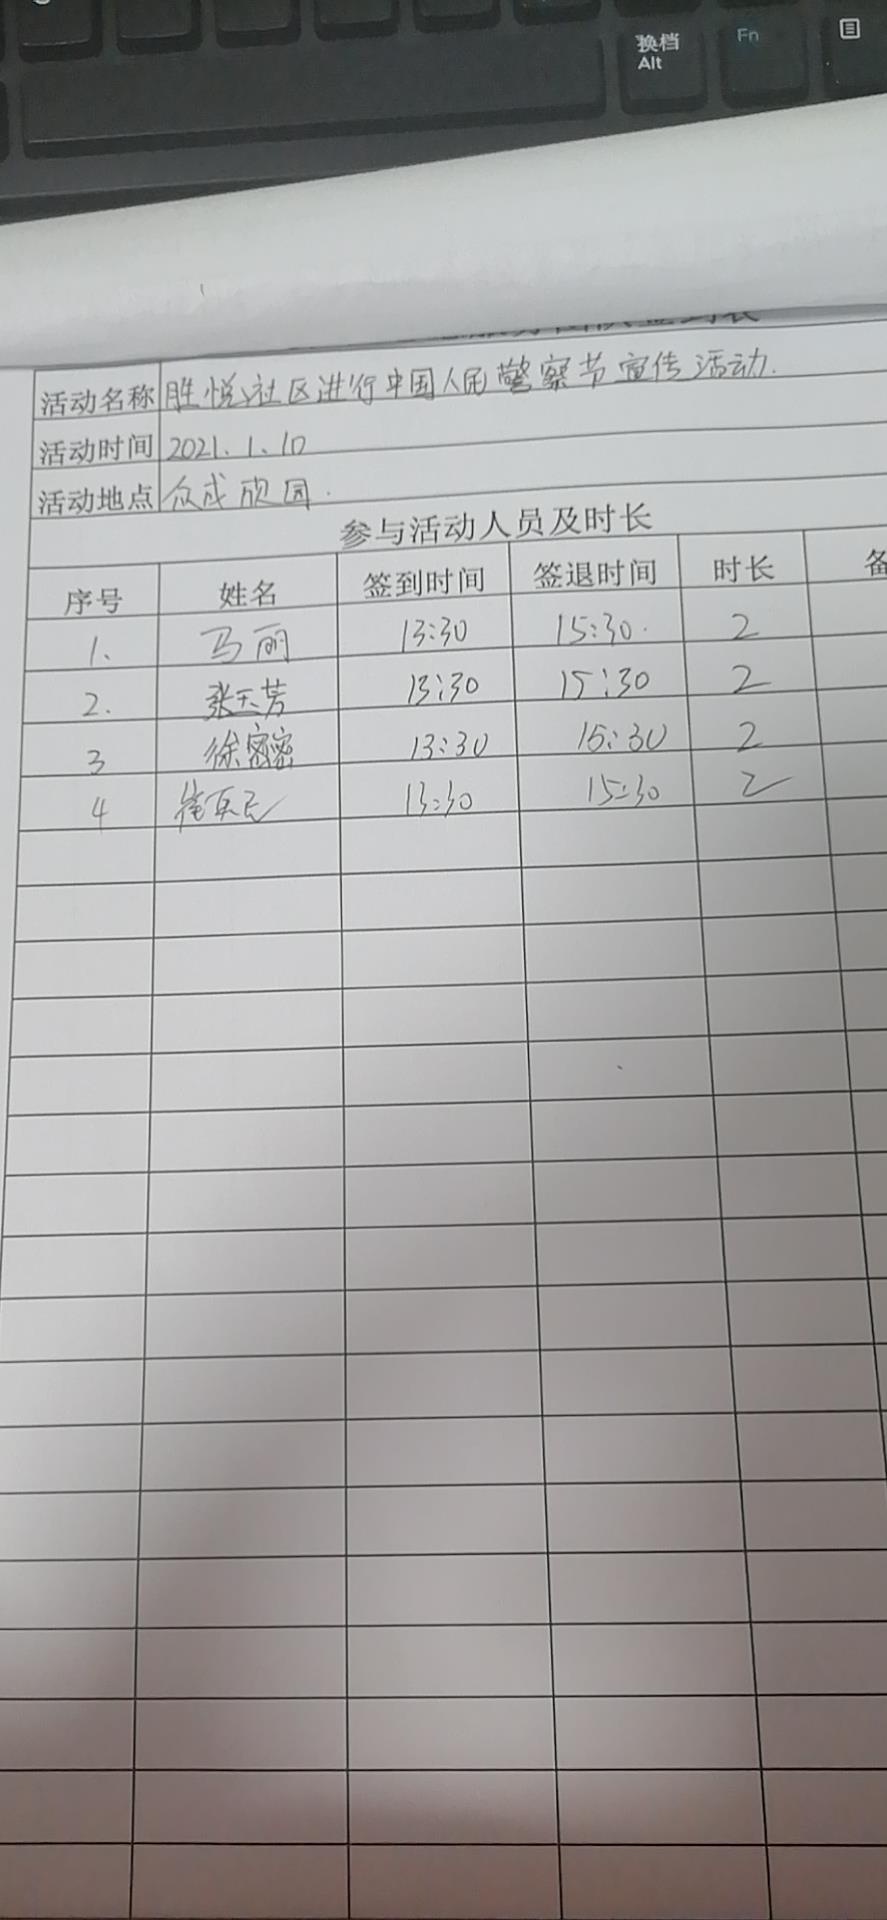 换档 Fn
Alt
活动名称 胜悦社区进行中国人民警察节宣传活动.
活动时间 2021.1.10
活动地点 众成颀园.
参与活动人员及时长
序号 姓名 签到时间 签退时间 时长 备
1. 马丽 13:30 15:30. 2
2. 张天芳 13:30 15:30 2
3 徐密密 13:30 15:30 2
4 13:30 15:30 2